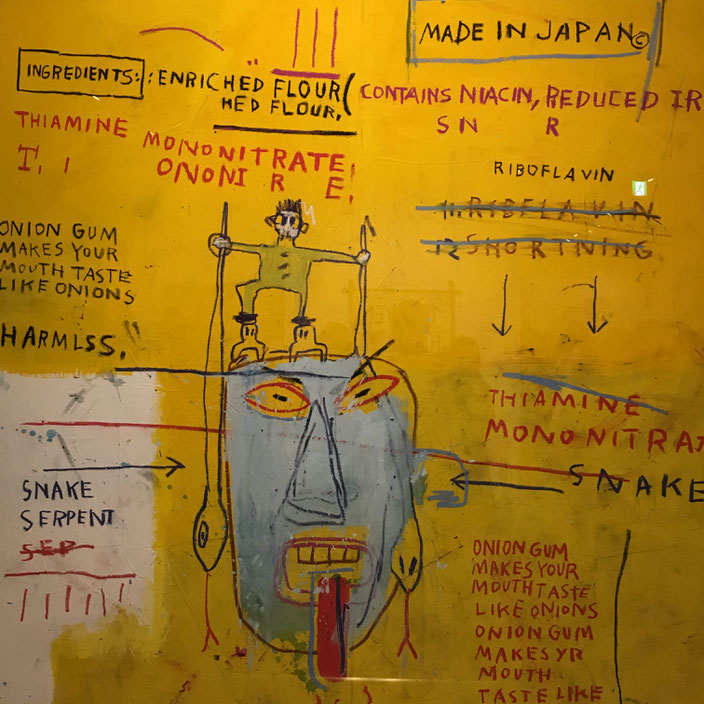 MADE IN JAPAN©
INGREDIENTS: : ENRICHED FLOUR (
HED FLOUR,
CONTAINS NIACIN, REDUCED IR
S N R
THIAMINE MONONITRATE,
T, I ONONI R E,
RIBOFLAVIN
SHORTNING
ONION GUM
MAKES YOUR
MOUTH TASTE
LIKE ONIONS
HARMLSS."
THIAMINE
MONONITRAT
SNAKE
SNAKE
SERPENT
SEP
ONION GUM
MAKES YOUR
MOUTH TASTE
LIKE ONIONS
ONION GUM
MAKES YR
MOUTH
TASTE LIKE